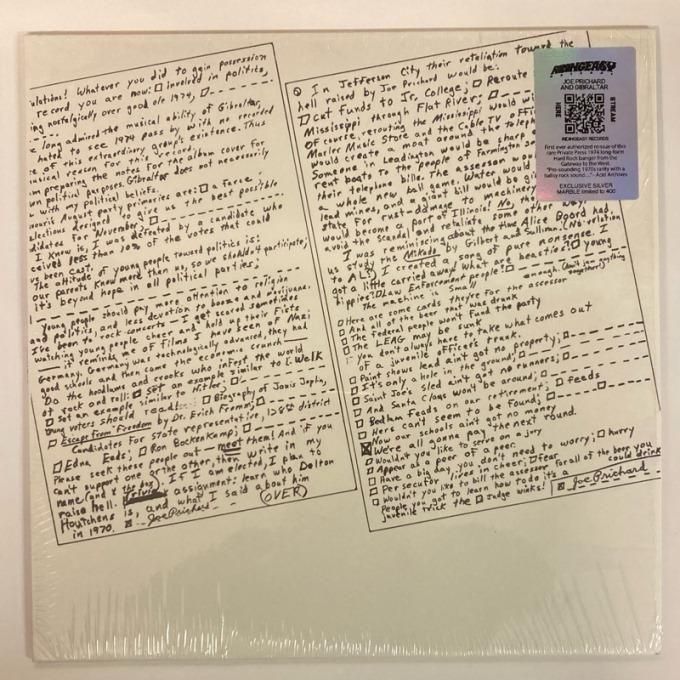 ulations! Whatever you did to gain possession
record you are now: ☐ involved in politics,
ing nostalgically over good ole 1974, ☐
long admired the musical ability of Gibraltar,
hated to see 1974 pass by with no recorded
e of this extraordinary group's existence. Thus
musical reason for this record.
m preparing the notes for the album cover for
wn political purposes. Gibraltar does not necessarily
with my political beliefs.
issouri's August party primaries are: ☐ a farce;
elections designed to give us the best possible
didates for November; ☐
I know is I was defeated by a candidate who
ceived less than 10% of the votes that could
been cast.
The attitude of young people toward politics is:
our parents know more than us, so we should participate;
it's beyond hope in all political parties;
Young people should pay more attention to religion
and politics, and less devotion to booze and marijuana.
I've been to rock concerts — I get scared sometimes
watching young people cheer and hold up their fists
— it reminds me of films I have seen of Nazi
Germany. Germany was technologically advanced, they had
good schools and then came the economic crunch
Do the hoodlums and crooks who infest the world
of rock and roll: ☐ set an example similar to L. Welk
☐ Set an example similar to Hitler; ☐
oung voters should read: ☐ Biography of Janis Joplin,
☐ Escape from Freedom by Dr. Erich Fromm; ☐
Candidates for state representative, 128th district
☐ Edna Eads; ☐ Ron Bockenkamp;
Please seek these people out — meet them! And if you
can't support one or the other, then write in my
name (and x the box). If I am elected, I plan to
raise hell. Private assignment: learn who Dalton
Houtchens is, and what I said about him
in 1970. ☒ Joe Prichard (OVER)
In Jefferson City their retaliation toward the
hell raised by Joe Prichard would be:
☐ Cut funds to Jr. College; ☐ Reroute
Mississippi through Flat River;
Of course, rerouting the Mississippi would wi
Marler Music Store and the Cable TV offi
Would create a moat around the teleph
Someone in Leadington would be sharp
rent boats to the people of Farmington so
their telephone bills. The assessor wou
whole new ball game. Water would
lead mines, and a giant bill would be gi
state for rust-damage to machinery
would become a part of Illinois! No, they
avoid the scandal and retaliate some other way.
I was reminiscing about the time Alice Boord had
us study the Mikado by Gilbert and Sullivan. (No relation
to AL) I created a song of pure nonsense. I
got a little carried away. What are beasties? ☐ young
hippies; ☐ Law Enforcement people; ☐
The machine is small enough. (Don't jam anything
together)
☐ Here are some cards they're for the assessor
☐ And all of the beer that was drunk
☐ The federal people won't fund the party
☐ The LEAG may be sunk
☐ You don't always have to take what comes out
of a juvenile officer's trunk.
☐ Paint shows lead ain't got no property;
☐ It's only a hole in the ground;
☐ Saint Joe's sled ain't got no runners;
☐ And Santa Claus won't be around;
☐ Bedham Feads on our retirement; ☐ feeds
☐ Hers can't seem to be found;
☐ Now our schools ain't got no money
☒ We're all gonna pay the next round.
☐ Wouldn't you like to serve on a jury
☐ Appear as a peer of a peer.
☐ Have a big day, you don't need to worry; ☐ hurry
☐ Per secutor lives in cheer; ☐ fear
☐ Wouldn't you like to bill the assessor for all of the beer you
could drink
☐ People you got to learn how to do it's a
juvenile trick the ☐ Judge winks! ☒ Joe Prichard
RIDINGEASY
RECORDS
JOE PRICHARD
AND GIBRALTAR
HERE
STREAM
RIDINGEASY RECORDS
First ever authorized reissue of this
rare Private Press 1974 long-form
Hard Rock banger from the
Gateway to the West.
"Pre-sounding 1970s rarity with a
ballsy rock sound..." - Acid Archives
EXCLUSIVE SILVER
MARBLE limited to 400